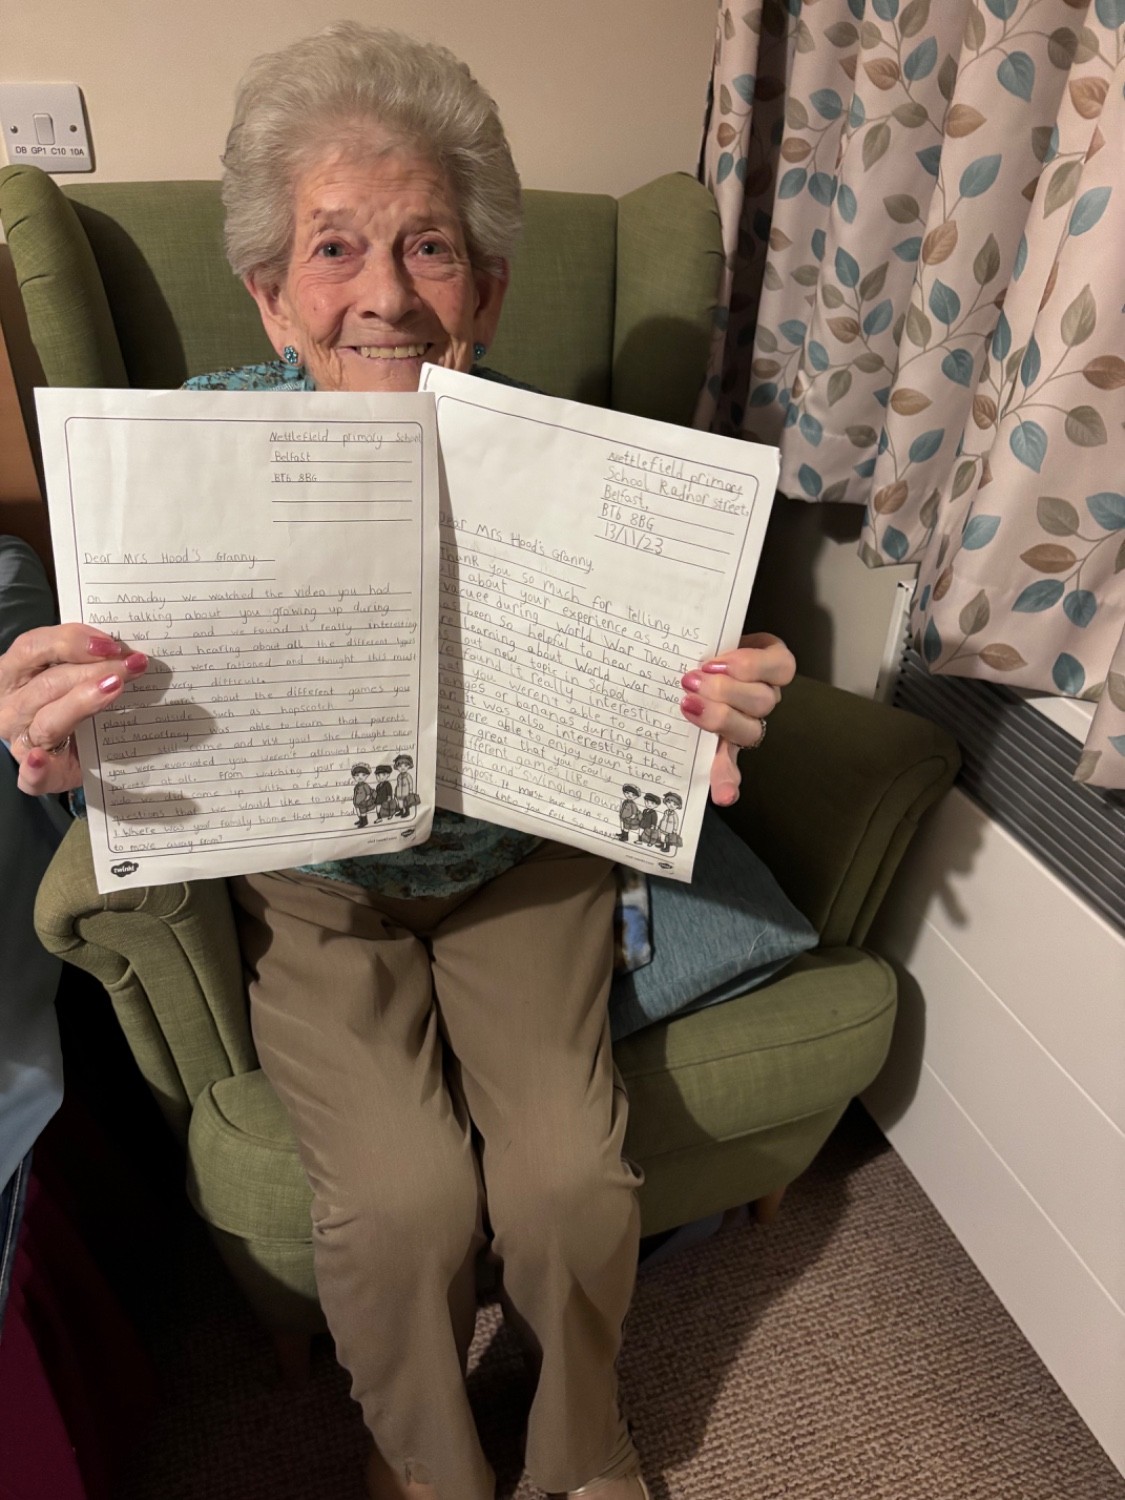 DB GP1 C10 10A
Nettlefield primary School
Belfast
BT6 8BG
Dear Mrs Hood's Granny
On Monday we watched the video you had
Made talking about you growing up during
War 2 and we found it really interesting
liked hearing about all the different types
that were rationed and thought this must
been very difficult.
learnt about the different games you
played outside such as hopscotch
Miss Macartney was able to learn that parents
could still come and visit you! She thought once
you were evacuated you weren't allowed to see your
parents at all. From watching your
we did come up with a few more
questions that we would like to ask you
1. Where was your family home that you had
to move away from?
twinkl
Nettlefield primary
School Radnor street,
Belfast,
BT6 8BG
13/11/23
Dear Mrs Hood's Granny,
Thank you so much for telling us
all about your experience as an
evacuee during World War Two. It
has been so helpful to hear as we
are learning about World War Two
out new topic in School
We found it really interesting
that you weren't able to eat
oranges or bananas during the
war. It was also interesting that
you were able to enjoy your time
was great that you could
different games like
and swinging round
lamppost. It must have been so